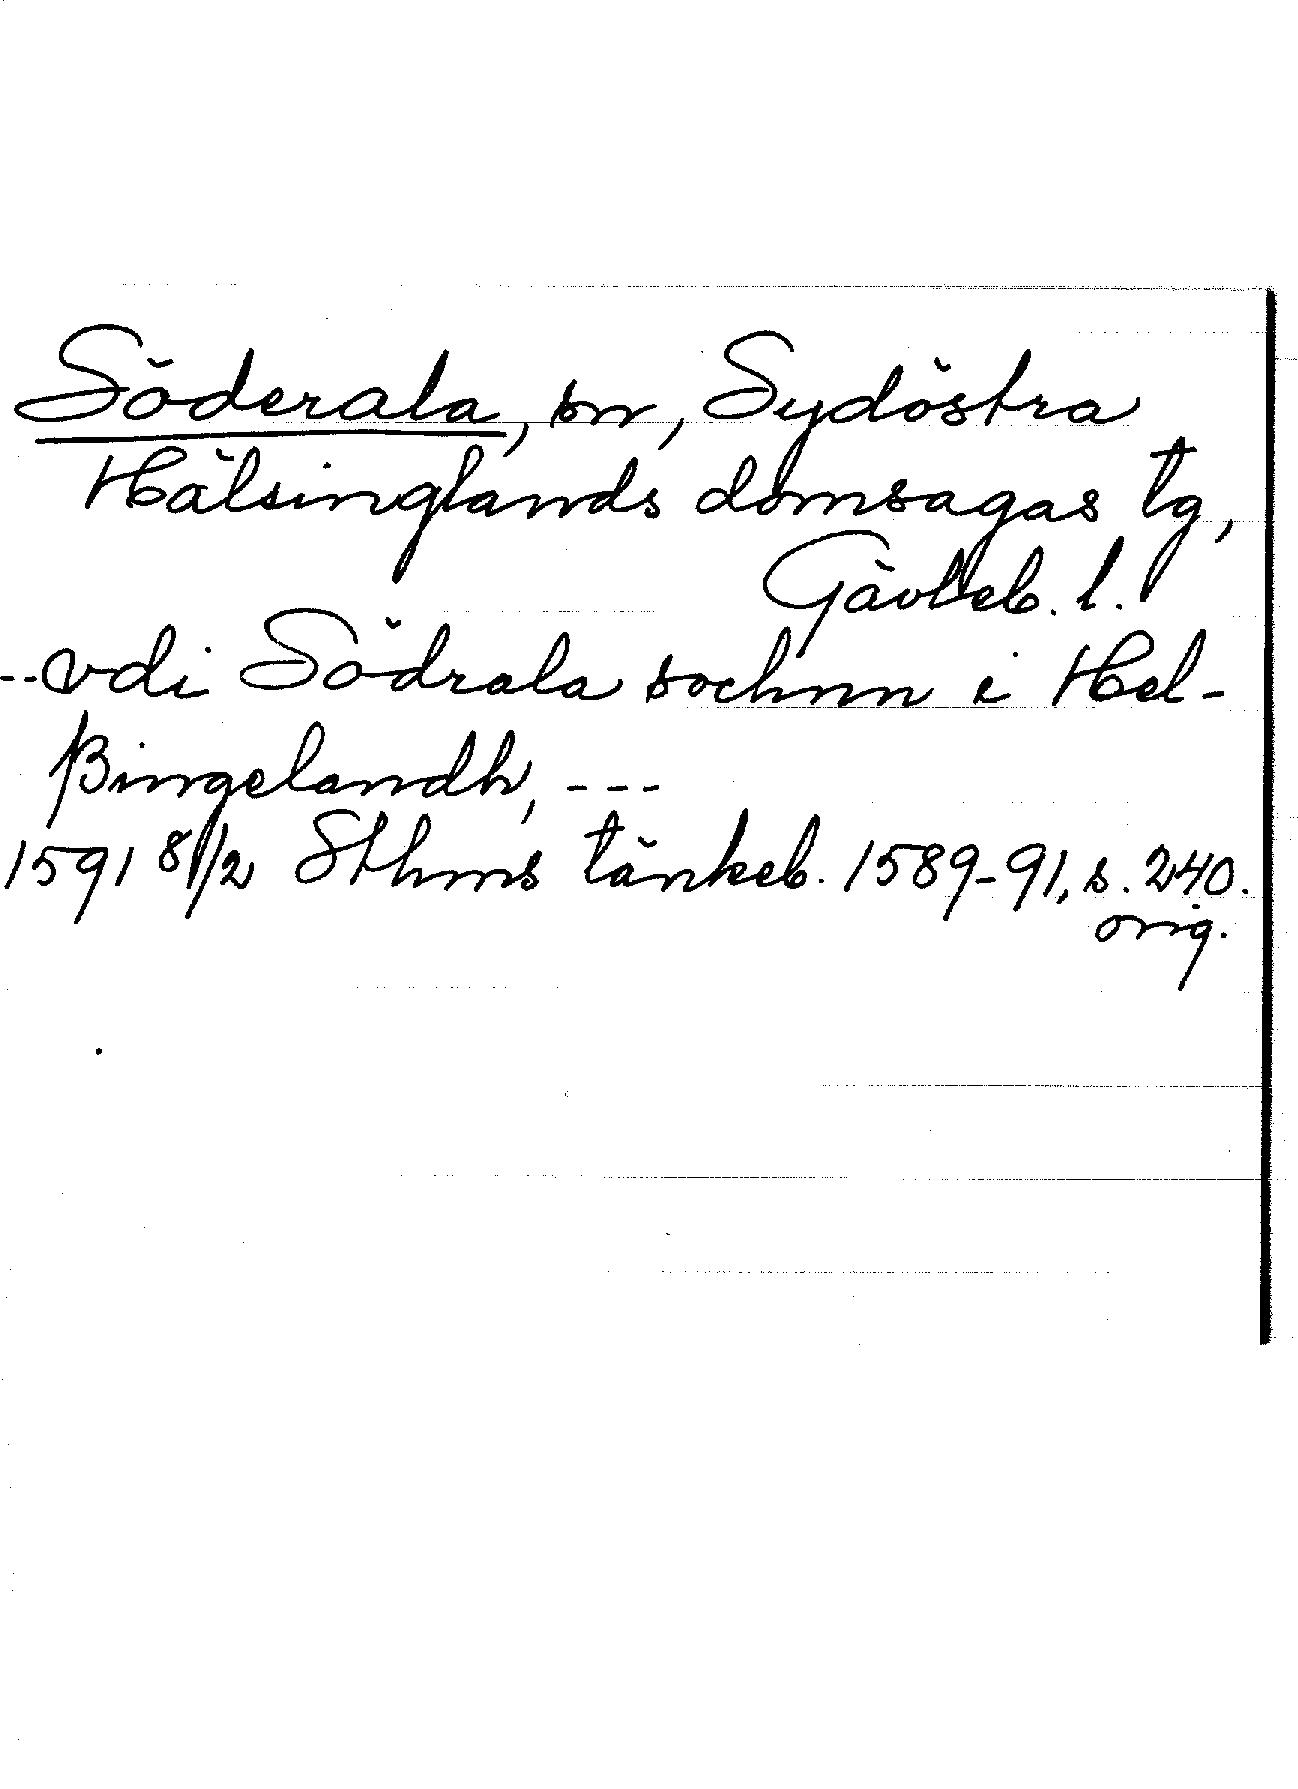 Söderala, sn, Sydöstra
Hälsinglands domsagas tg,
Gävleb. l.
--vdi Södrala sochnn i Hel-
ßingelandh, ---
1591 8/2 Sthms tänkeb. 1589-91, s. 240.
orig.